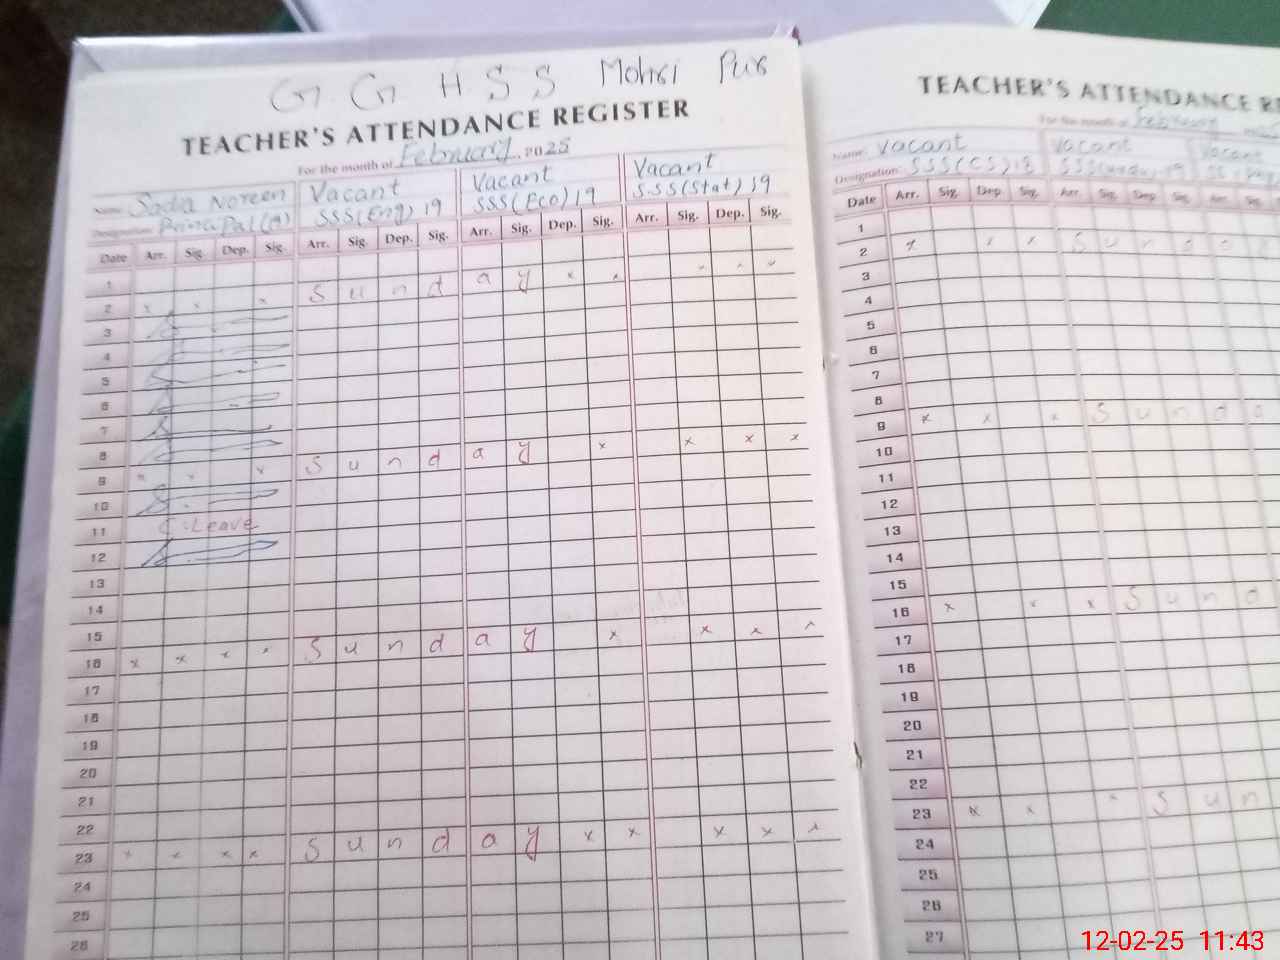 G. G H S S Mohri Pur
TEACHER'S ATTENDANCE REGISTER
For the month of February, 2025
Name: Sadia Noreen Vacant Vacant Vacant
Designation: Principal SSS(Eng) 19 SSS(Eco) 19 S.S.S(Stat) 19
Date Arr. Sig. Dep. Sig. Arr. Sig. Dep. Sig. Arr. Sig. Dep. Sig. Arr. Sig. Dep. Sig.
1
2 x x x S u n d a y x x x x x
3
4
5
6
7
8
9 x x x S u n d a y x x x x
10
11 C. Leave
12
13
14
15
16 x x x x S u n d a y x x x x
17
18
19
20
21
22
23 x x x x S u n d a y x x x x x
24
25
26
TEACHER'S ATTENDANCE RE
For the month of February
Name: Vacant Vacant Vacant
Designation: SSS(CS) 18
Date Arr. Sig. Dep. Sig. Arr. Sig. Dep. Sig. Arr. Sig.
1
2 x x x S u n d a
3
4
5
6
7
8
9 x x x S u n d a
10
11
12
13
14
15
16 x x x S u n d
17
18
19
20
21
22
23 x x x S u n
24
25
26
27
12-02-25 11:43